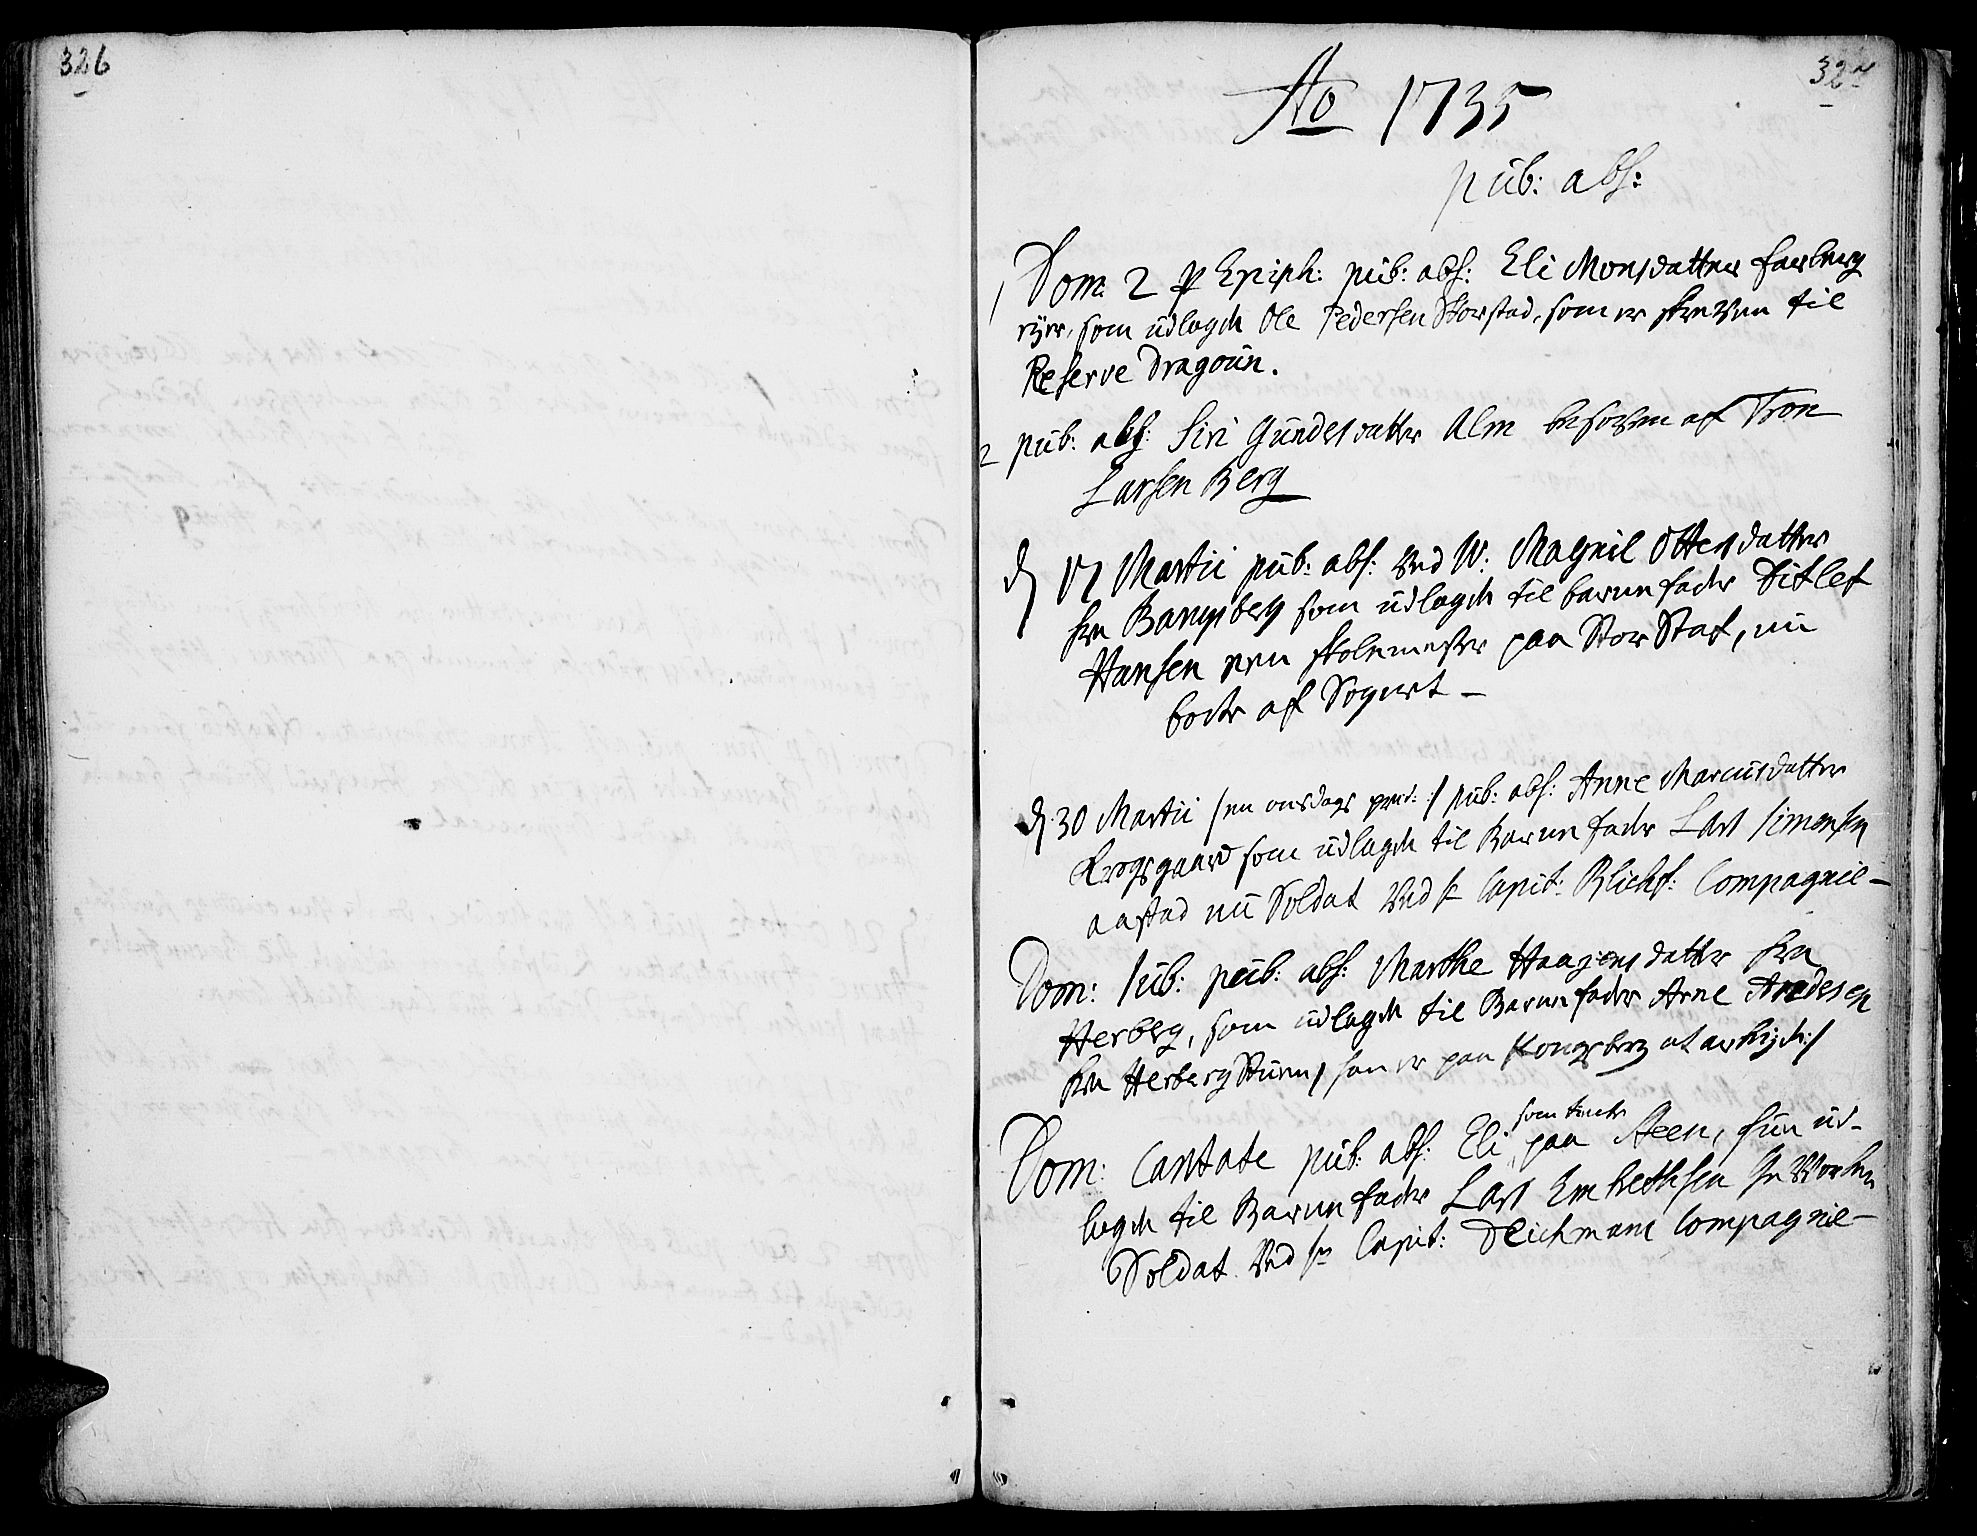 326
327
Ao 1735
pub: abs:
1 Dom 2 p Epiph: pub: abs: Eli Monsdatter Farberg
ejer, som udlagde Ole Pedersen Storstad, som er skreven til
Reserve Dragoun.
2 pub: abs: Siri Gundersdatter Alm besoven af Tron
Larsen Berg
d 17 Martii pub: abs: ved W: Magnil Ottersdatter
fra Bangsberg som udlagde til barnefader Ditlef
Hansen een skolemester paa Stor Staf, nu
borte af Sognet -
d 30 Martii /en onsdags præd:/ pub: abs: Anne Marcusdatter
Krogsgaard som udlagde til Barnefader Lars Simensen
aastad nu Soldat ved hr Capit: Blichf: Compagnie -
Dom: Jub: pub: abs: Marthe Haagensdatter fra
Herberg, som udlagde til Barnefader Arne Andersen
fra Herberg /han er paa Kongsberg at arbejde:/
som tiente
Dom: Cantate pub: abs: Eli paa Steen, hun ud-
lagde til Barnefader Lars Embrethsen
Soldat ved hr Capit: Deichmans Compagnie -